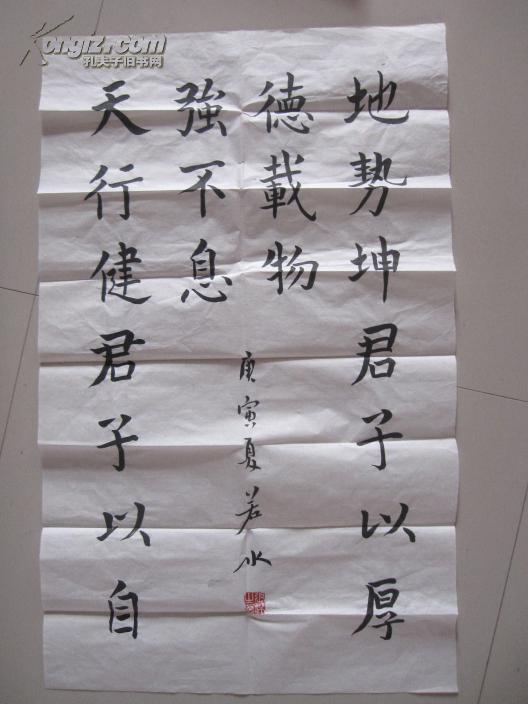 地勢坤君子以厚
德載物
天行健君子以自
強不息
庚寅夏若水
Kongfz.com
孔夫子旧书网